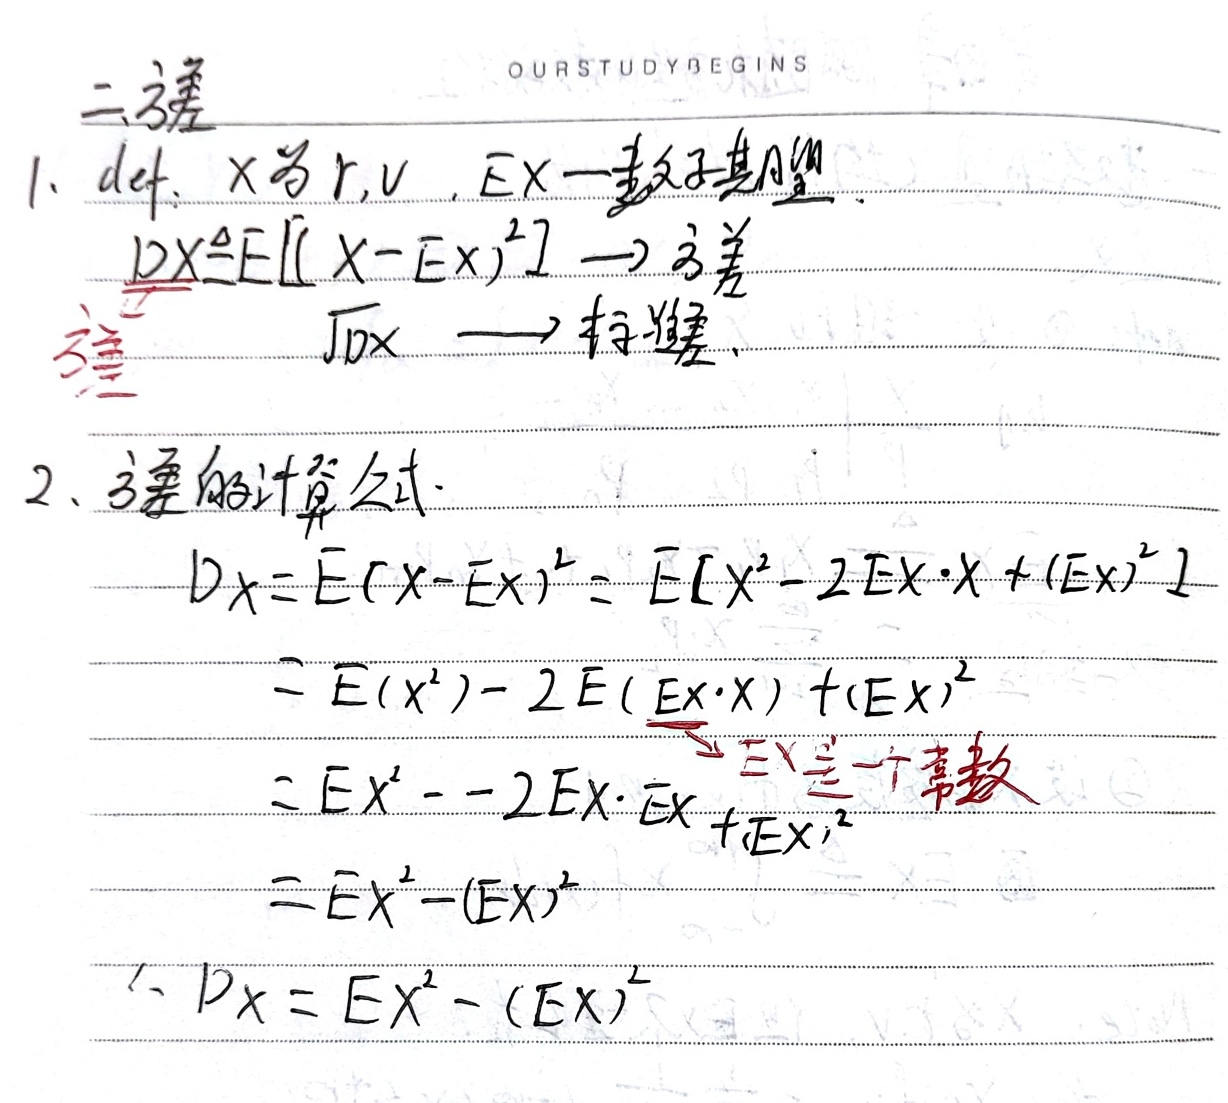 OURSTUDYBEGINS
二、方差
1、def: X为r,v , EX—数学期望.
DX≜E[(X-EX)²] → 方差
方差
√DX ⟶ 标准差.
2、方差的计算公式.
DX=E(X-EX)²= E[X²-2EX·X+(EX)²]
= E(X²)-2E(EX·X)+(EX)²
↘ EX是一个常数
= EX²--2EX·EX+(EX)²
= EX²-(EX)²
∴ DX = EX²-(EX)²